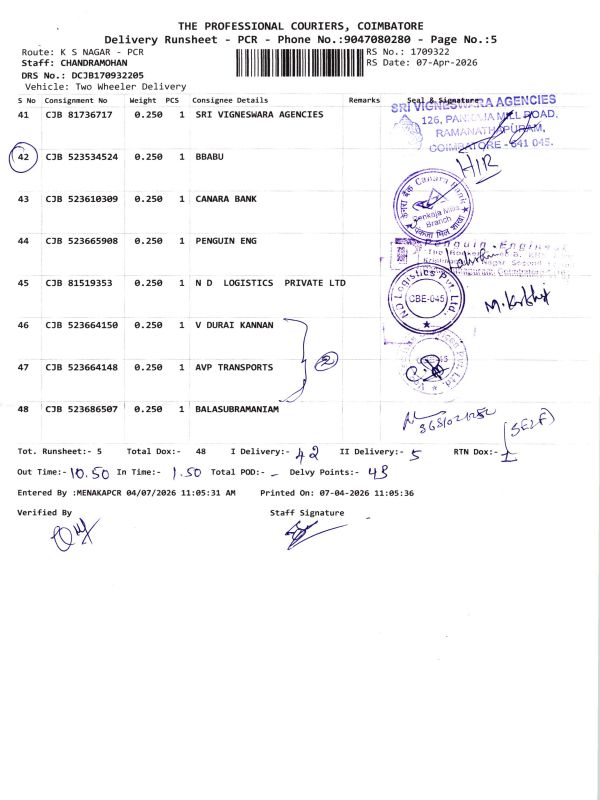 THE PROFESSIONAL COURIERS, COIMBATORE
Delivery Runsheet - PCR - Phone No.:9047080280 - Page No.:5
Route: K S NAGAR - PCR
RS No.: 1709322
Staff: CHANDRAMOHAN
RS Date: 07-Apr-2026
DRS No.: DCJB170932205
Vehicle: Two Wheeler Delivery
S No Consignment No Weight PCS Consignee Details Remarks Seal & Signature
41 CJB 81736717 0.250 1 SRI VIGNESWARA AGENCIES
SRI VIGNESWARA AGENCIES
126, PANKAJA MILL ROAD,
RAMANATHAPURAM,
COIMBATORE - 641 045.
42 CJB 523534524 0.250 1 BBABU
H/R
43 CJB 523610309 0.250 1 CANARA BANK
केनरा बैंक Canara Bank
Pankaja Mills
Branch
44 CJB 523665908 0.250 1 PENGUIN ENG
Penguin Engineer
45 CJB 81519353 0.250 1 N D LOGISTICS PRIVATE LTD
Logistics Pvt. Ltd.
CBE-045
46 CJB 523664150 0.250 1 V DURAI KANNAN
2
47 CJB 523664148 0.250 1 AVP TRANSPORTS
48 CJB 523686507 0.250 1 BALASUBRAMANIAM
(SELF)
Tot. Runsheet:- 5 Total Dox:- 48 I Delivery:- 42 II Delivery:- 5 RTN Dox:- 1
Out Time:- 10.50 In Time:- 1.50 Total POD:- - Delvy Points:- 43
Entered By :MENAKAPCR 04/07/2026 11:05:31 AM Printed On: 07-04-2026 11:05:36
Verified By Staff Signature